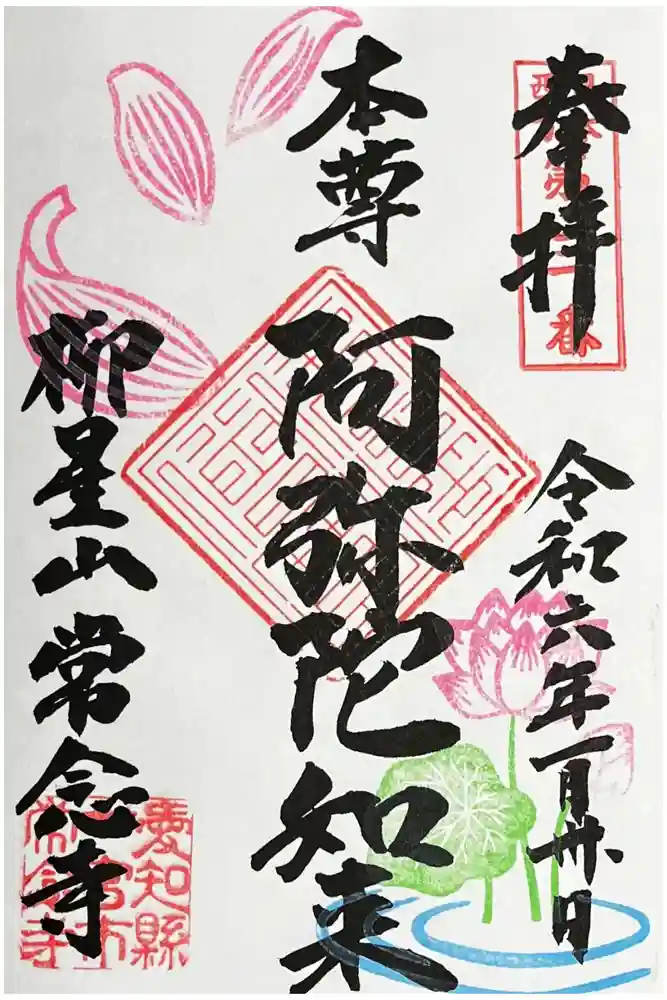 奉拝
令和六年一月卅日
本尊
阿弥陀如来
柳星山 常念寺
愛知縣
一宮市
常念寺